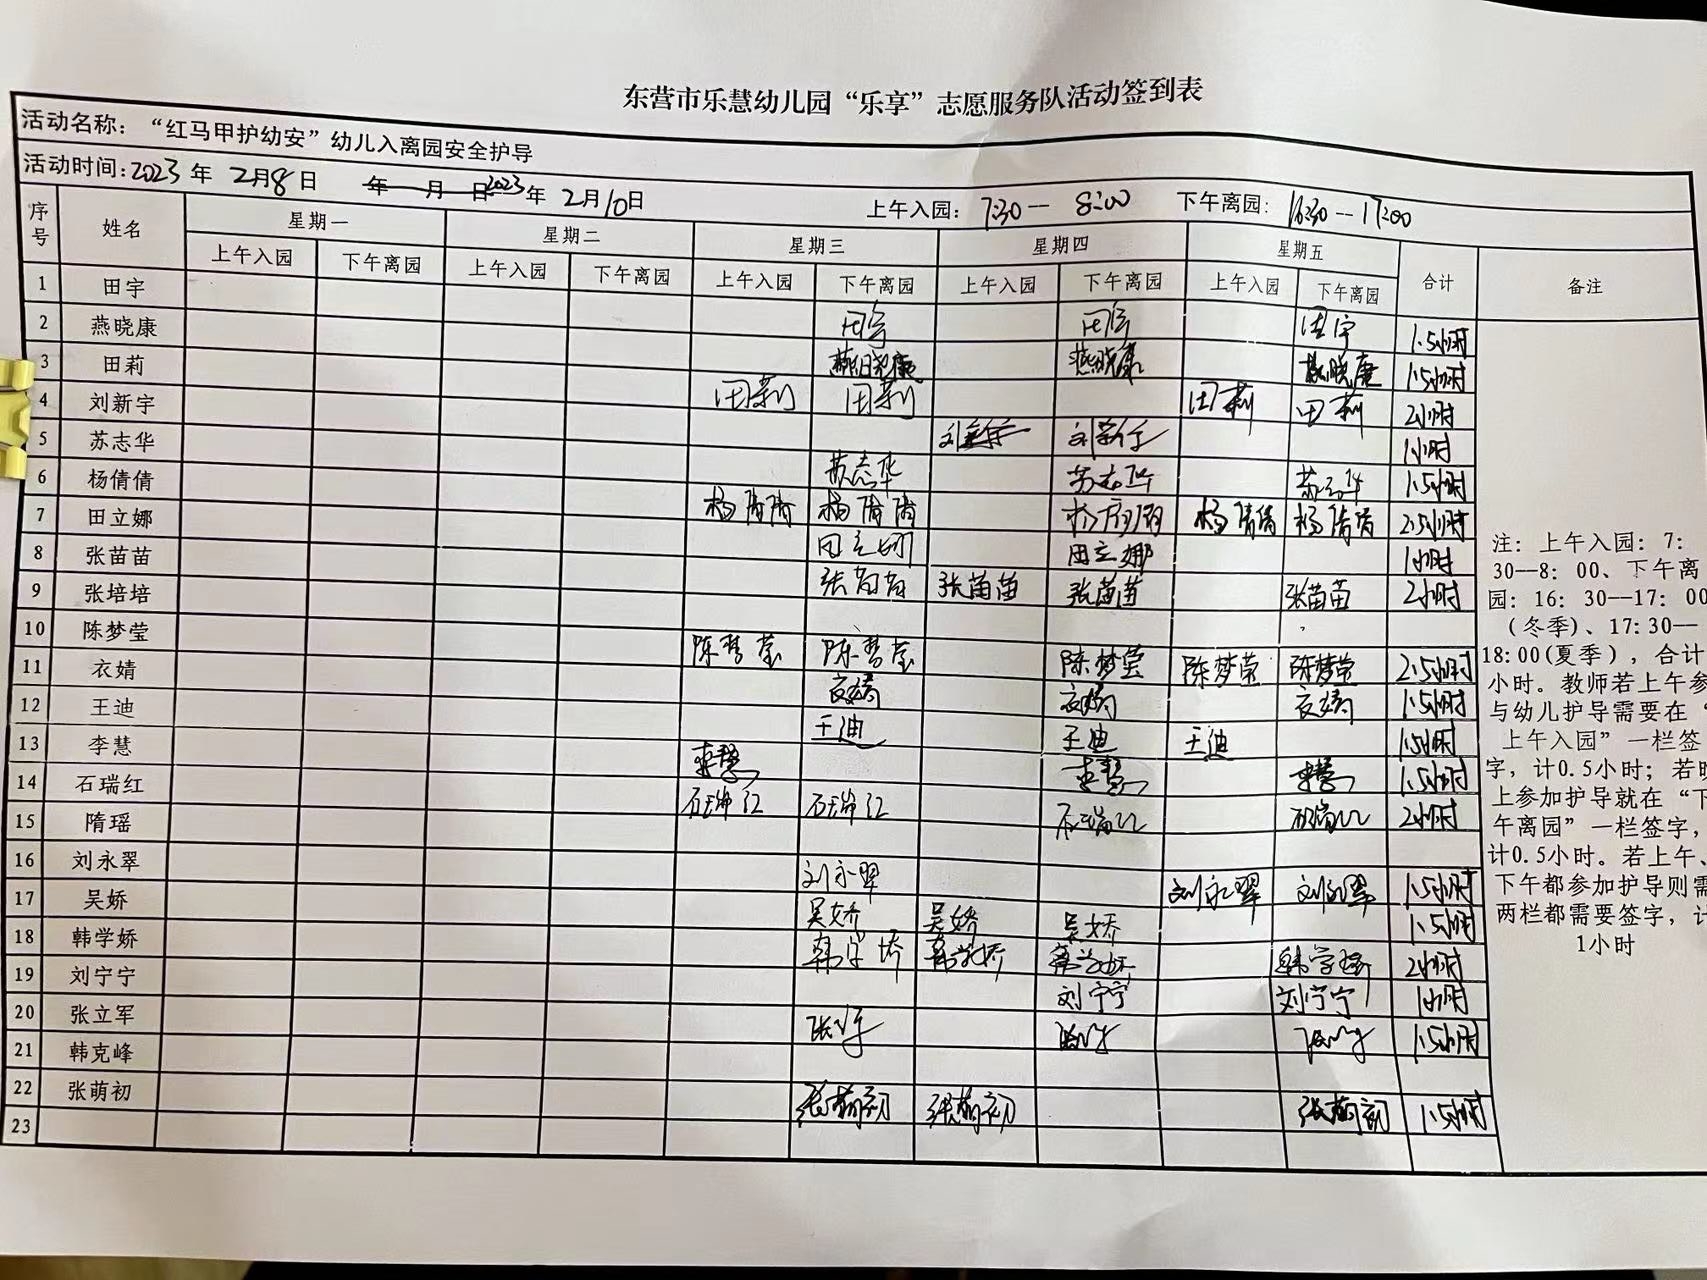 东营市乐慧幼儿园“乐享”志愿服务队活动签到表
活动名称：“红马甲护幼安”幼儿入离园安全护导
活动时间：2023年 2月8日 年 月 日 2023年 2月10日 上午入园：7:30--8:00 下午离园：16:30--17:00
序号 姓名 星期一 星期二 星期三 星期四 星期五 合计 备注
上午入园 下午离园 上午入园 下午离园 上午入园 下午离园 上午入园 下午离园 上午入园 下午离园
1 田宇 田宇 田宇 田宇 1.5小时
2 燕晓康 燕晓康 燕晓康 燕晓康 1.5小时
3 田莉 田莉 田莉 田莉 田莉 2小时
4 刘新宇 刘新宇 刘新宇 1小时
5 苏志华 苏志华 苏志华 苏志华 1.5小时
6 杨倩倩 杨倩倩 杨倩倩 杨倩倩 杨倩倩 杨倩倩 2.5小时
7 田立娜 田立娜 田立娜 1小时
8 张苗苗 张苗苗 张苗苗 张苗苗 张苗苗 2小时
9 张培培
10 陈梦莹 陈梦莹 陈梦莹 陈梦莹 陈梦莹 陈梦莹 2.5小时
11 衣婧 衣婧 衣婧 衣婧 1.5小时
12 王迪 王迪 王迪 王迪 1.5小时
13 李慧 李慧 李慧 李慧 1.5小时
14 石瑞红 石瑞红 石瑞红 石瑞红 石瑞红 2小时
15 隋瑶
16 刘永翠 刘永翠 刘永翠 刘永翠 1.5小时
17 吴娇 吴娇 吴娇 吴娇 1.5小时
18 韩学娇 韩学娇 韩学娇 韩学娇 韩学娇 2小时
19 刘宁宁 刘宁宁 刘宁宁 1小时
20 张立军 1.5小时
21 韩克峰
22 张萌初 张萌初 张萌初 张萌初 1.5小时
23
注：上午入园：7:
30--8：00、下午离
园：16：30--17：00
（冬季）、17:30--
18:00(夏季），合计
小时。教师若上午参
与幼儿护导需要在“
上午入园”一栏签
字，计0.5小时；若晚
上参加护导就在“下
午离园”一栏签字，
计0.5小时。若上午、
下午都参加护导则需
两栏都需要签字，计
1小时